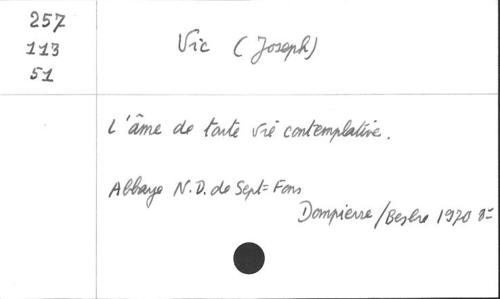 257
113
51
Vic (Joseph)
L'âme de toute vie contemplative.
Abbaye N.D. de Sept=Fons
Dompierre/Besbre 1970 8°